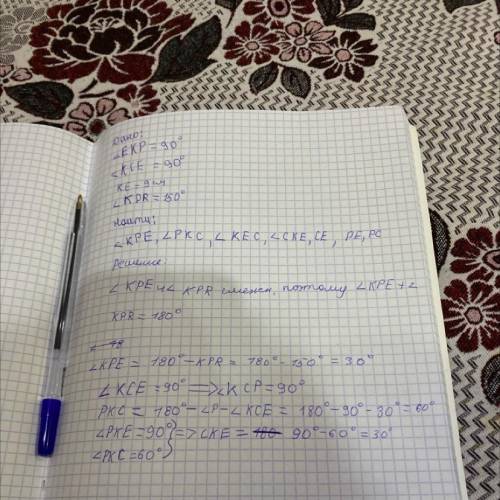 Дано:
∠EKP = 90°
∠KCE = 90°
KE = 9см
∠KPR = 150°
Найти:
∠KPE, ∠PKC, ∠KEC, ∠CKE, CE, PE, PC
Решение:
∠KPE и ∠KPR смежн, поэтому ∠KPE + ∠
KPR = 180°
∠KPE = 180° - KPR = 180° - 150° = 30°
∠KCE = 90° => ∠KCP = 90°
PKC = 180° - ∠P - ∠KCE = 180° - 90 - 30° = 60°
∠PKE = 90° } => CKE = 180 90° - 60° = 30°
∠PKC = 60°